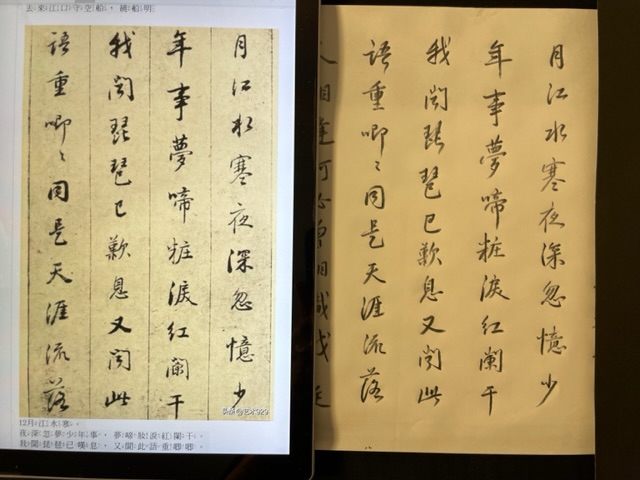 去來江口守空船，繞船明
月江水寒夜深忽憶少
年事夢啼粧淚紅闌干
我聞琵琶已歎息又聞此
語重唧〻同是天涯流落
12月江水寒，
夜深忽夢少年事，夢啼妝淚紅闌干，
我聞琵琶已嘆息，又聞此語重唧唧，
月江水寒夜深忽憶少
年事夢啼粧淚紅闌干
我聞琵琶已歎息又聞此
語重唧〻同是天涯流落
人相逢何必曾相識我